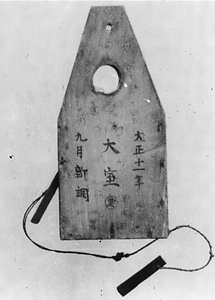 大正十一年
大室
九月新調